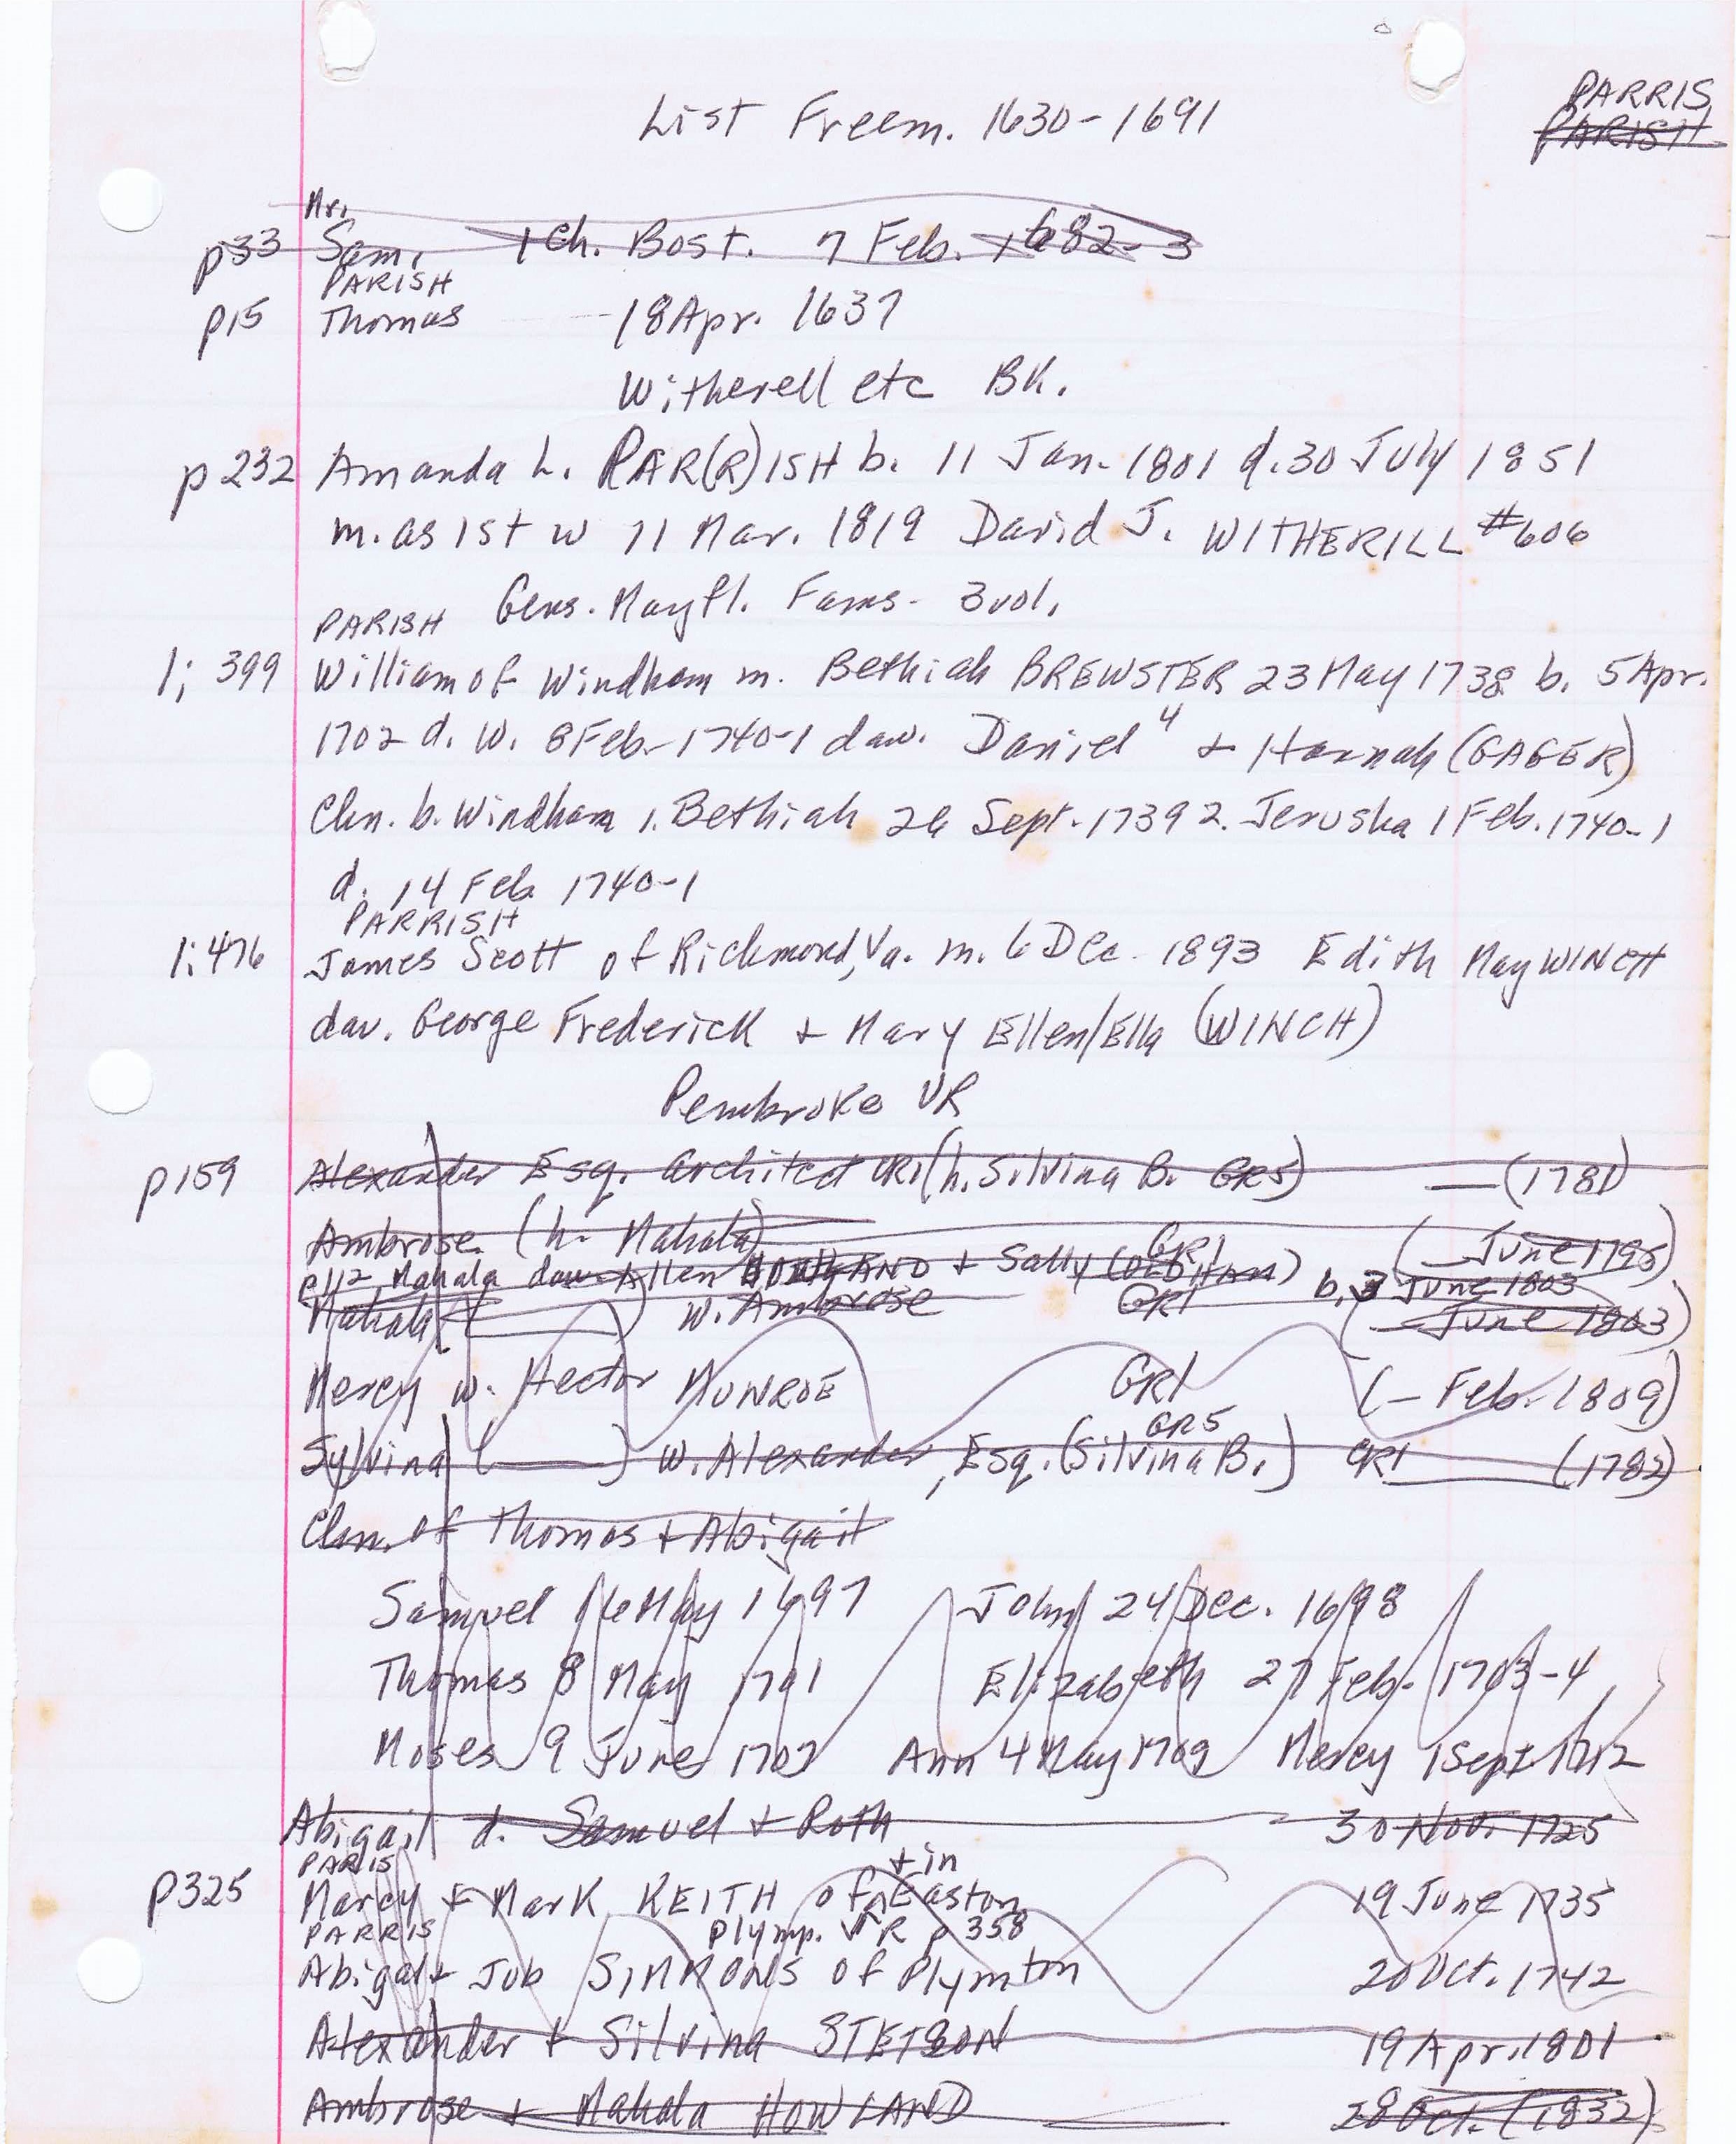 List Freem. 1630-1691
PARRIS
PARISH
Mr.
p33 Sam. 1 Ch. Bost. 7 Feb. 1682-3
PARISH
p15 Thomas 18 Apr. 1637
Witherell etc Bk.
p232 Amanda L. PAR(R)ISH b. 11 Jan. 1801 d. 30 July 1851
m. as 1st w 11 Mar. 1819 David J. WITHERILL #606
Gens. Mayfl. Fams. 3 vol.
PARISH
1; 399 William of Windham m. Bethiah BREWSTER 23 May 1738 b. 5 Apr.
1702 d. W. 8 Feb. 1740-1 dau. Daniel 4 + Hannah (GAGER)
Chn. b. Windham 1. Bethiah 26 Sept. 1739 2. Jerusha 1 Feb. 1740-1
d. 14 Feb. 1740-1
PARRISH
1:476 James Scott of Richmond, Va. m. 6 Dec. 1893 Edith May WINCH
dau. George Frederick + Mary Ellen/Ella (WINCH)
Pembroke VR
p159 Alexander Esq. architect GR1 (h. Silvina B. GR5) — (1781)
Ambrose (h. Mahala) GR1 (— June 1796)
p112 Mahala dau. Allen HOWLAND + Sally (OLDHAM) b. 3 June 1803
Mahala ( ) w. Ambrose GR1 (— June 1803)
Mercy w. Hector MUNROE GR1 (— Feb. 1809)
GR5
Sylvina ( ) w. Alexander, Esq. (Silvina B.) GR1 (1782)
Chn. of Thomas + Abigail
Samuel May 1697 John 24 Dec. 1698
Thomas 8 May 1701 Elizabeth 27 Feb. 1703-4
Moses 9 June 1707 Ann 4 May 1709 Mercy 1 Sept. 1712
Abigail d. Samuel + Ruth 30 Nov. 1725
PARIS + in
p325 Marcy + Mark KEITH of Easton 19 June 1735
PARRIS Plymp. VR p 358
Abigal + Job SIMMONS of Plymton 20 Oct. 1742
Alexander + Silvina STETSON 19 Apr. 1801
Ambrose + Mahala HOWLAND — 28 Oct. (1832)